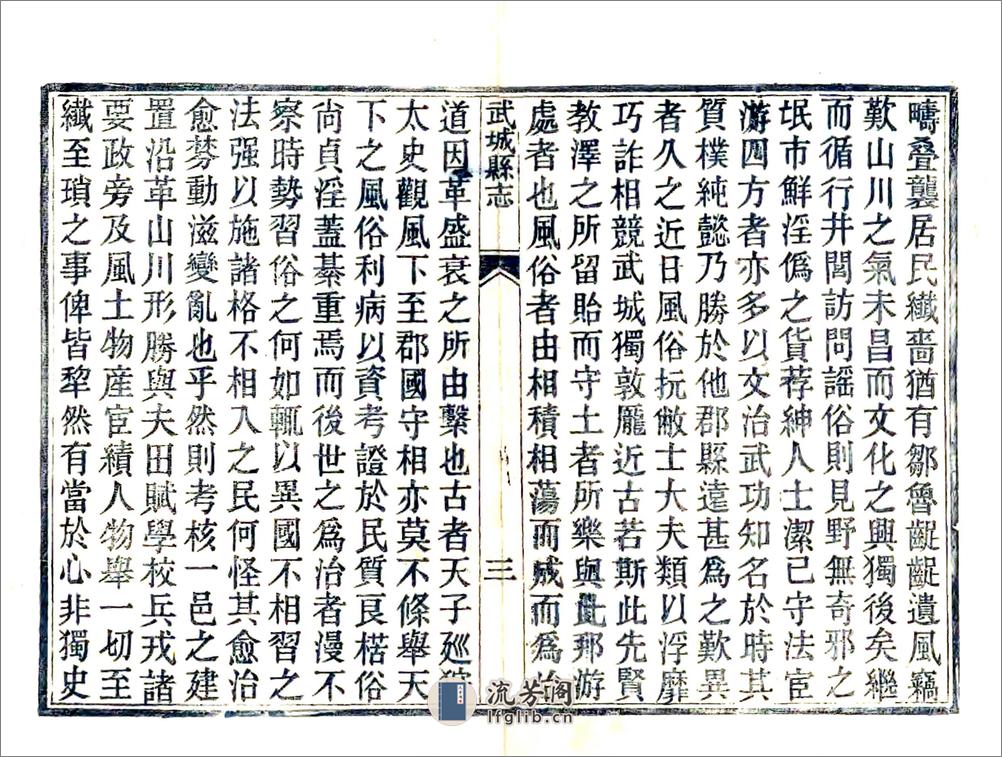 疇疊襲居民纖嗇猶有鄒魯齪齪遺風竊
歎山川之氣未昌而文化之興獨後矣繼
而循行井閭訪問謠俗則見野無奇邪之
氓市鮮淫僞之貨荐紳人士潔已守法宦
游四方者亦多以文治武功知名於時其
質樸純懿乃勝於他郡縣遠甚爲之歎異
者久之近日風俗抏敝士大夫類以浮靡
巧詐相競武城獨敦龎近古若斯此先賢
教澤之所留貽而守土者所樂與此邦游
處者也風俗者由相積相蕩而成而爲治
武城縣志
三
道因革盛衰之所由繫也古者天子廵狩
太史觀風下至郡國守相亦莫不條舉天
下之風俗利病以資考證於民質良楛俗
尚貞淫蓋綦重焉而後世之爲治者漫不
察時勢習俗之何如輒以異國不相習之
法强以施諸格不相入之民何怪其愈治
愈棼動滋變亂也乎然則考核一邑之建
置沿革山川形勝與夫田賦學校兵戎諸
要政旁及風土物産宦績人物舉一切至
纖至瑣之事俾皆犂然有當於心非獨史
流芳閣
lfglib.cn